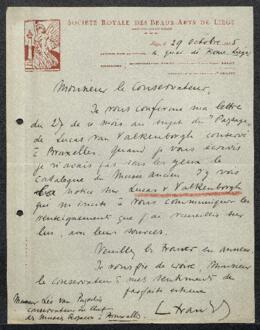 SOCIÉTÉ ROYALE DES BEAUX-ARTS DE LIÉGE
29 Octobre
Monsieur le Conservateur,
Je vous confirme ma lettre
du 27 de ce mois au sujet du "Paysage
de Lucas van Valkenborgh conservé
à Bruxelles. Quand je vous écrivis
je n'avais pas sous les yeux le
catalogue du Musée ancien
notice sur Lucas v Valkenborgh
qui m'incite à vous communiquer les
renseignements que j'ai recueillis sur
lui, avec leurs sources.
Veuillez les trouver en annexe
Je vous prie de croire, Monsieur
le conservateur à mes sentiments de
parfaite estime
Monsieur Leo van Puyvelde
conservateur en chef
des Musées Royaux à Bruxelles